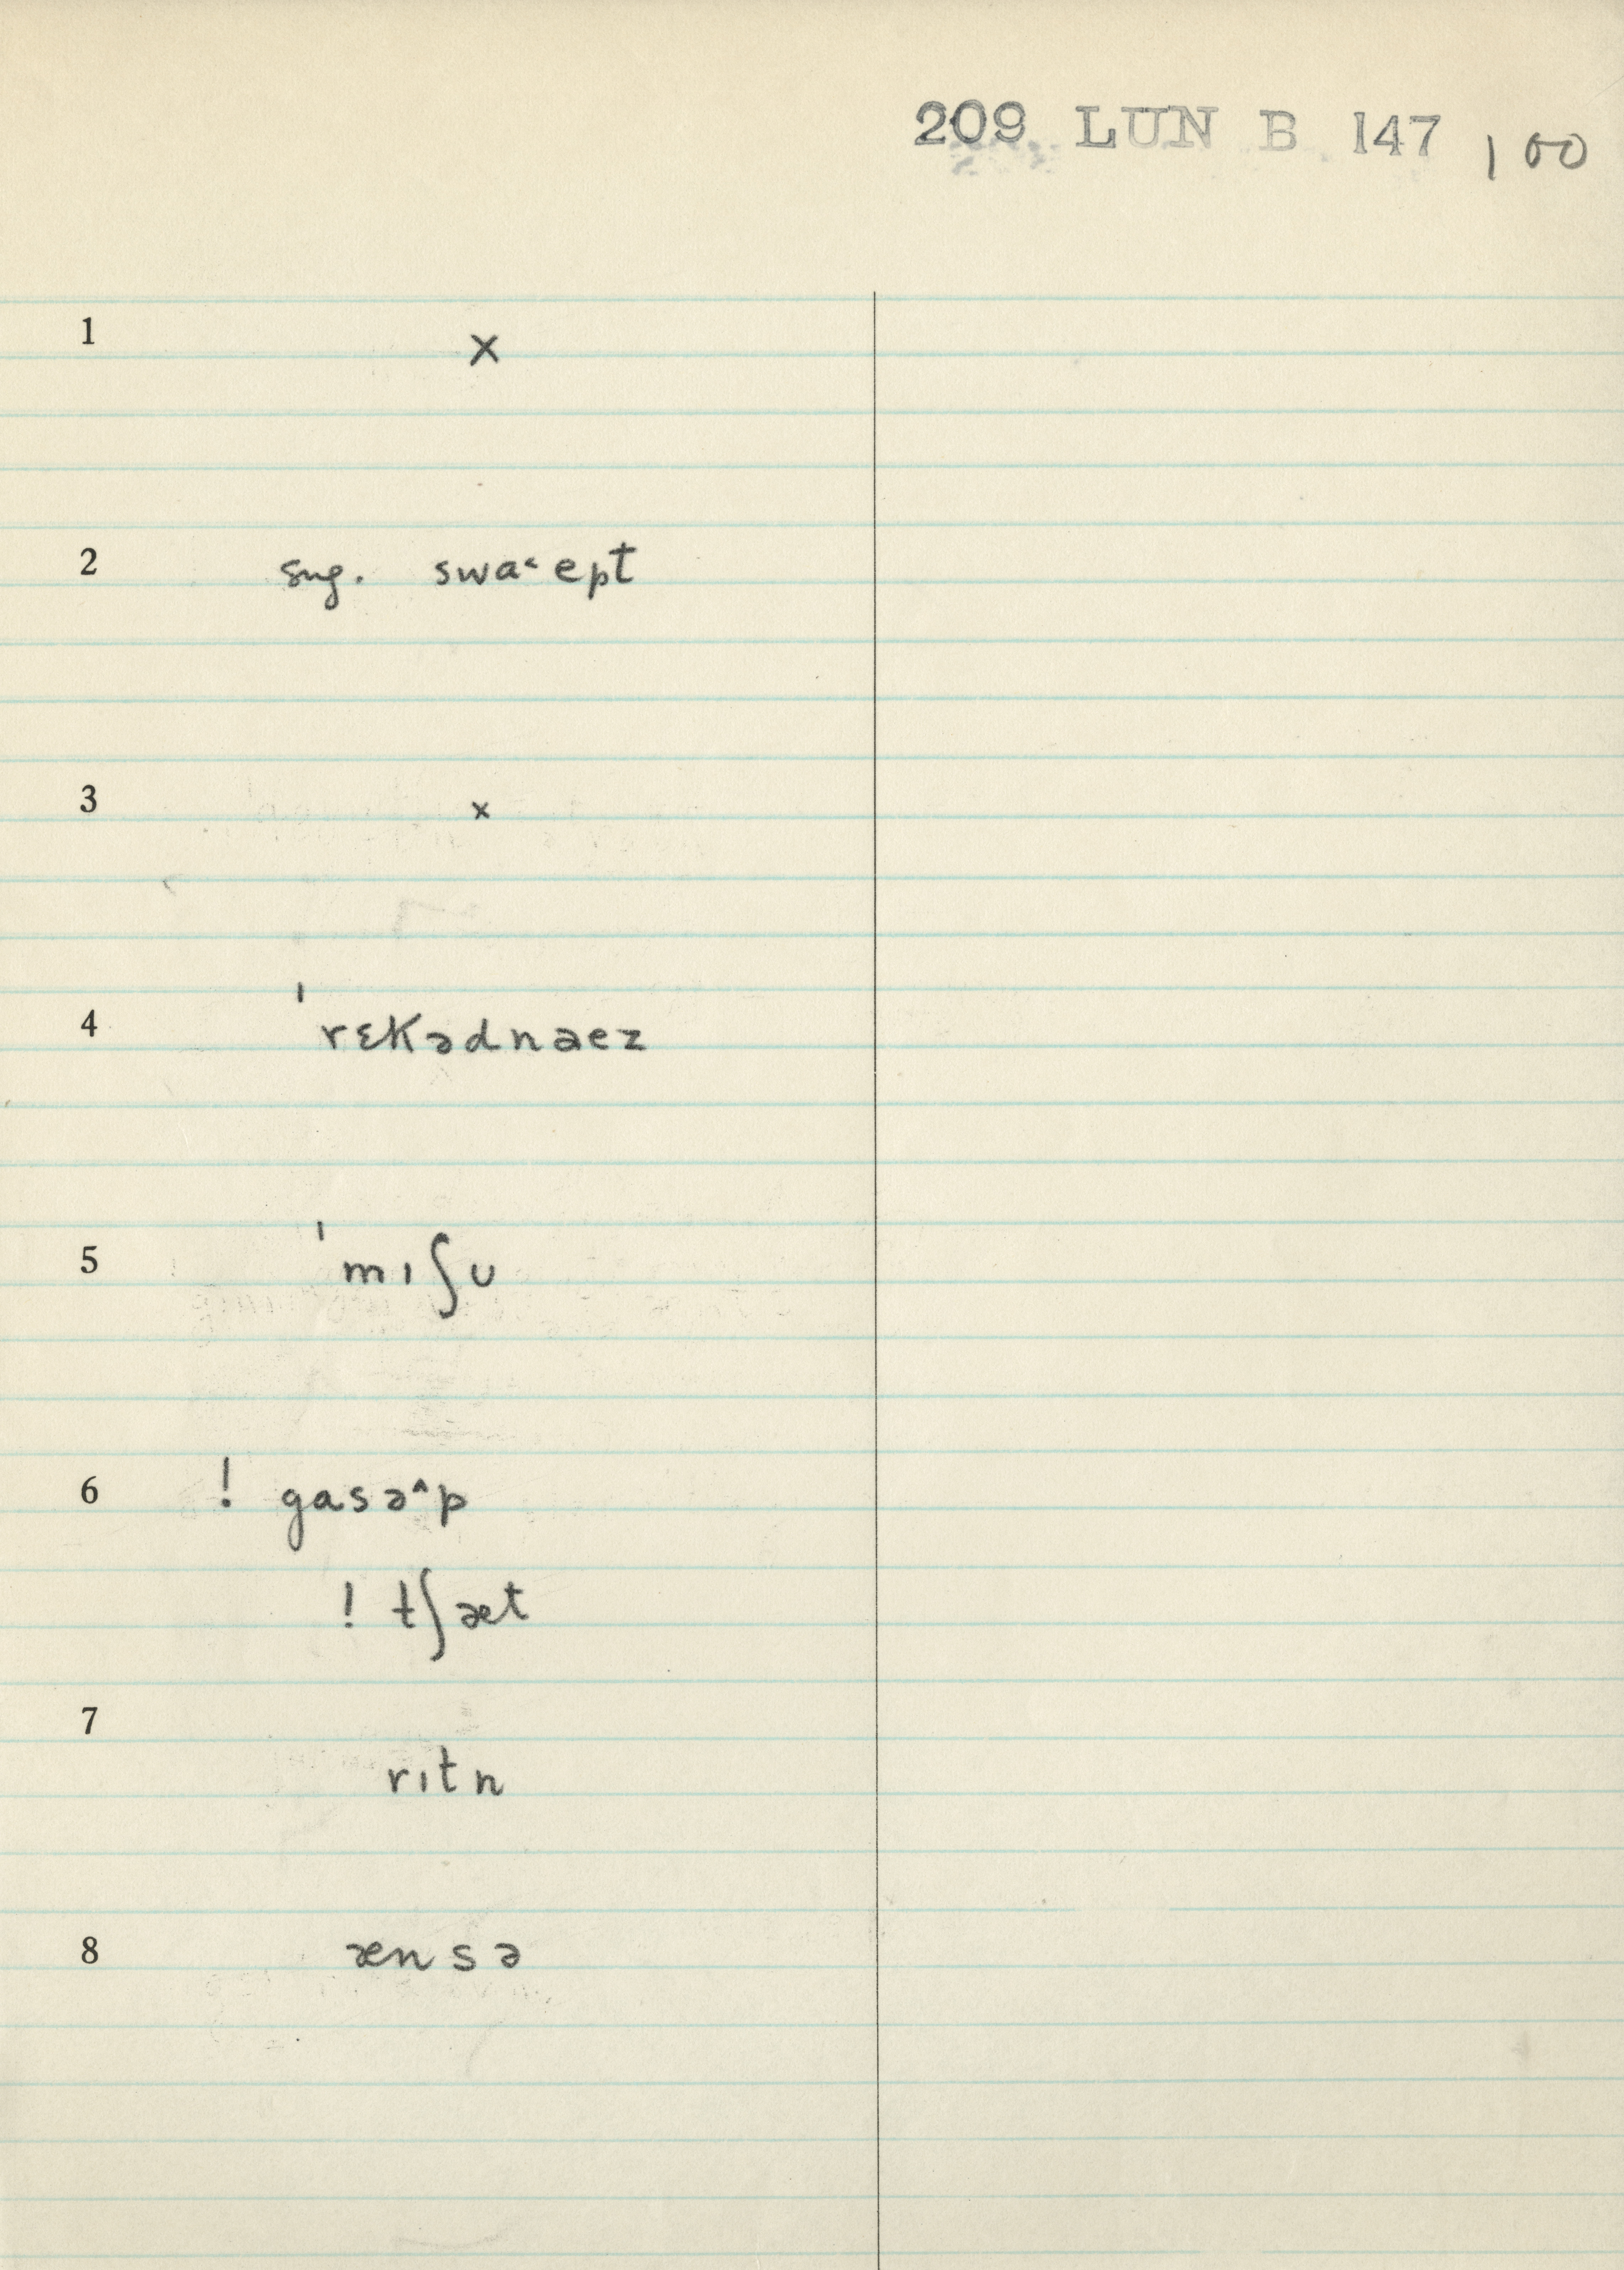 209 LUN B 147 100
1 x
2 sug. swa˂ept
3 x
4 ˈrɛkədnaez
5 ˈmɪʃʊ
6 ! gasə˄p
! tʃæt
7 rɪtn
8 ænsə